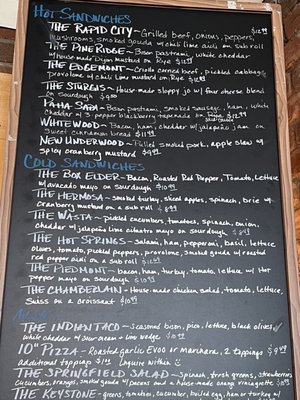 HOT SANDWICHES
THE RAPID CITY - Grilled beef, onions, peppers, $12.99
mushrooms, smoked gouda w/ chili lime aioli on sub roll
THE PINE RIDGE - Bison pastrami, white cheddar
w/ house made Dijon mustard on Rye $11.99
THE EDGEMONT - Circle corned beef, pickled cabbage,
provolone w/ chili lime mustard on Rye
THE STURGIS - House made sloppy jo w/ four cheese blend
on Sourdough
PAHA SAPA - Bison pastrami, smoked sausage, ham, white
cheddar w/ 3 pepper blackberry tapenade on $12.99
WHITEWOOD - Bacon, ham, cheddar w/ jalapeño jam on
sweet cinnamon bread $11.99
NEW UNDERWOOD - Pulled smoked pork, apple slaw w/
spicy cranberry mustard $9.99
COLD SANDWICHES
THE BOX ELDER - Bacon, Roasted Red Pepper, Tomato, Lettuce
w/ avocado mayo on Sourdough $10.99
THE HERMOSA - smoked turkey, sliced apples, spinach, brie w/
cranberry mustard on a sub roll
THE WASTA - pickled cucumbers, tomatoes, spinach, onion,
cheddar w/ jalapeño lime cilantro mayo on sourdough
THE HOT SPRINGS - salami, ham, pepperoni, basil, lettuce
olives, tomato, pickled peppers, provolone, smoked gouda w/ roasted
red pepper aioli on a sub roll
THE PIEDMONT - bacon, ham, turkey, tomato, lettuce w/ Hot
pepper mayo on sourdough
THE CHAMBERLAIN - House-made chicken salad, tomato, lettuce
Swiss on a croissant $10.99
THE INDIAN TACO - Seasoned bison, pico, lettuce, black olives,
white cheddar w/ sour cream + lime wedge $10.99
10" PIZZA - Roasted garlic EVOO or marinara, 2 toppings $9.99
Additional toppings $1 Inquire within
THE SPRINGFIELD SALAD - Spinach, fresh greens, strawberries
Cucumbers, oranges, smoked gouda w/ pecans and a house-made orange vinaigrette
THE KEYSTONE - greens, tomatoes, cucumber, boiled egg, ham or turkey w/